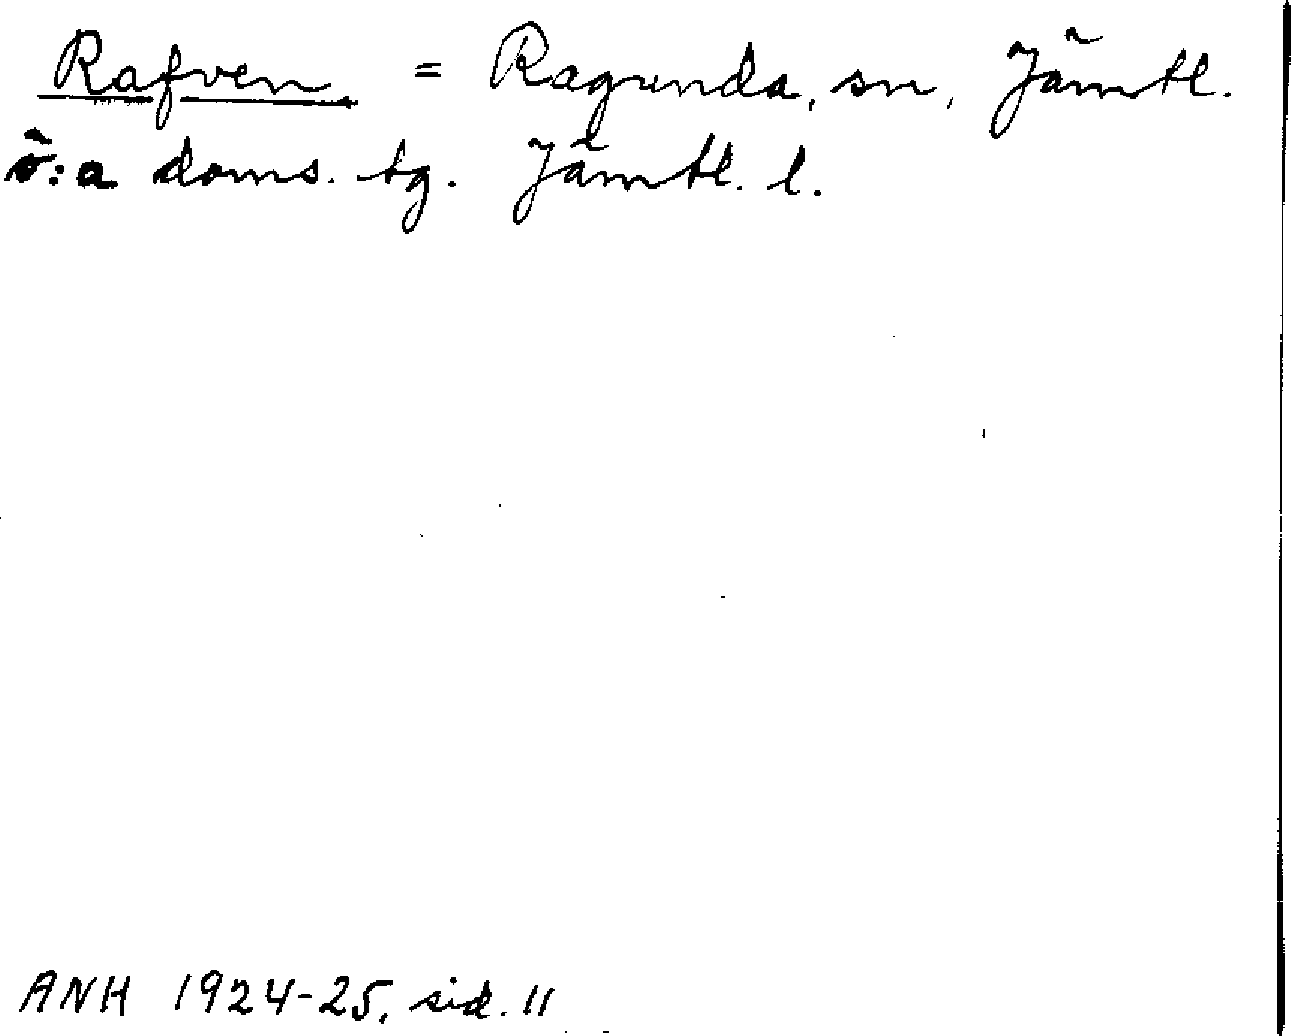 Rafven = Ragunda, sn, Jämtl.
ö:a doms. tg. Jämtl. l.
ANH 1924-25, sid. 11